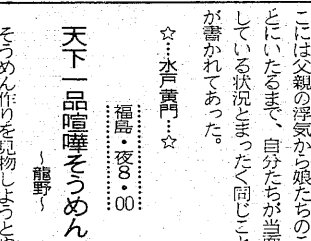 こには父親の浮気から娘たちのこ
とにいたるまで、自分たちが当面
している状況とまったく同じこと
が書かれてあった。
☆…水戸黄門…☆
福島・夜8・00
天下一品喧嘩そうめん
～龍野～
そうめん作りを見物しようと